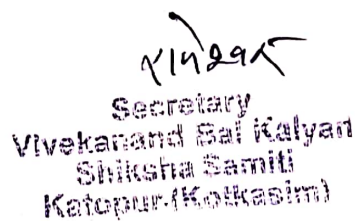 Secretary
Vivekanand Bal Kalyan
Shiksha Samiti
Katopur (Kotkasim)